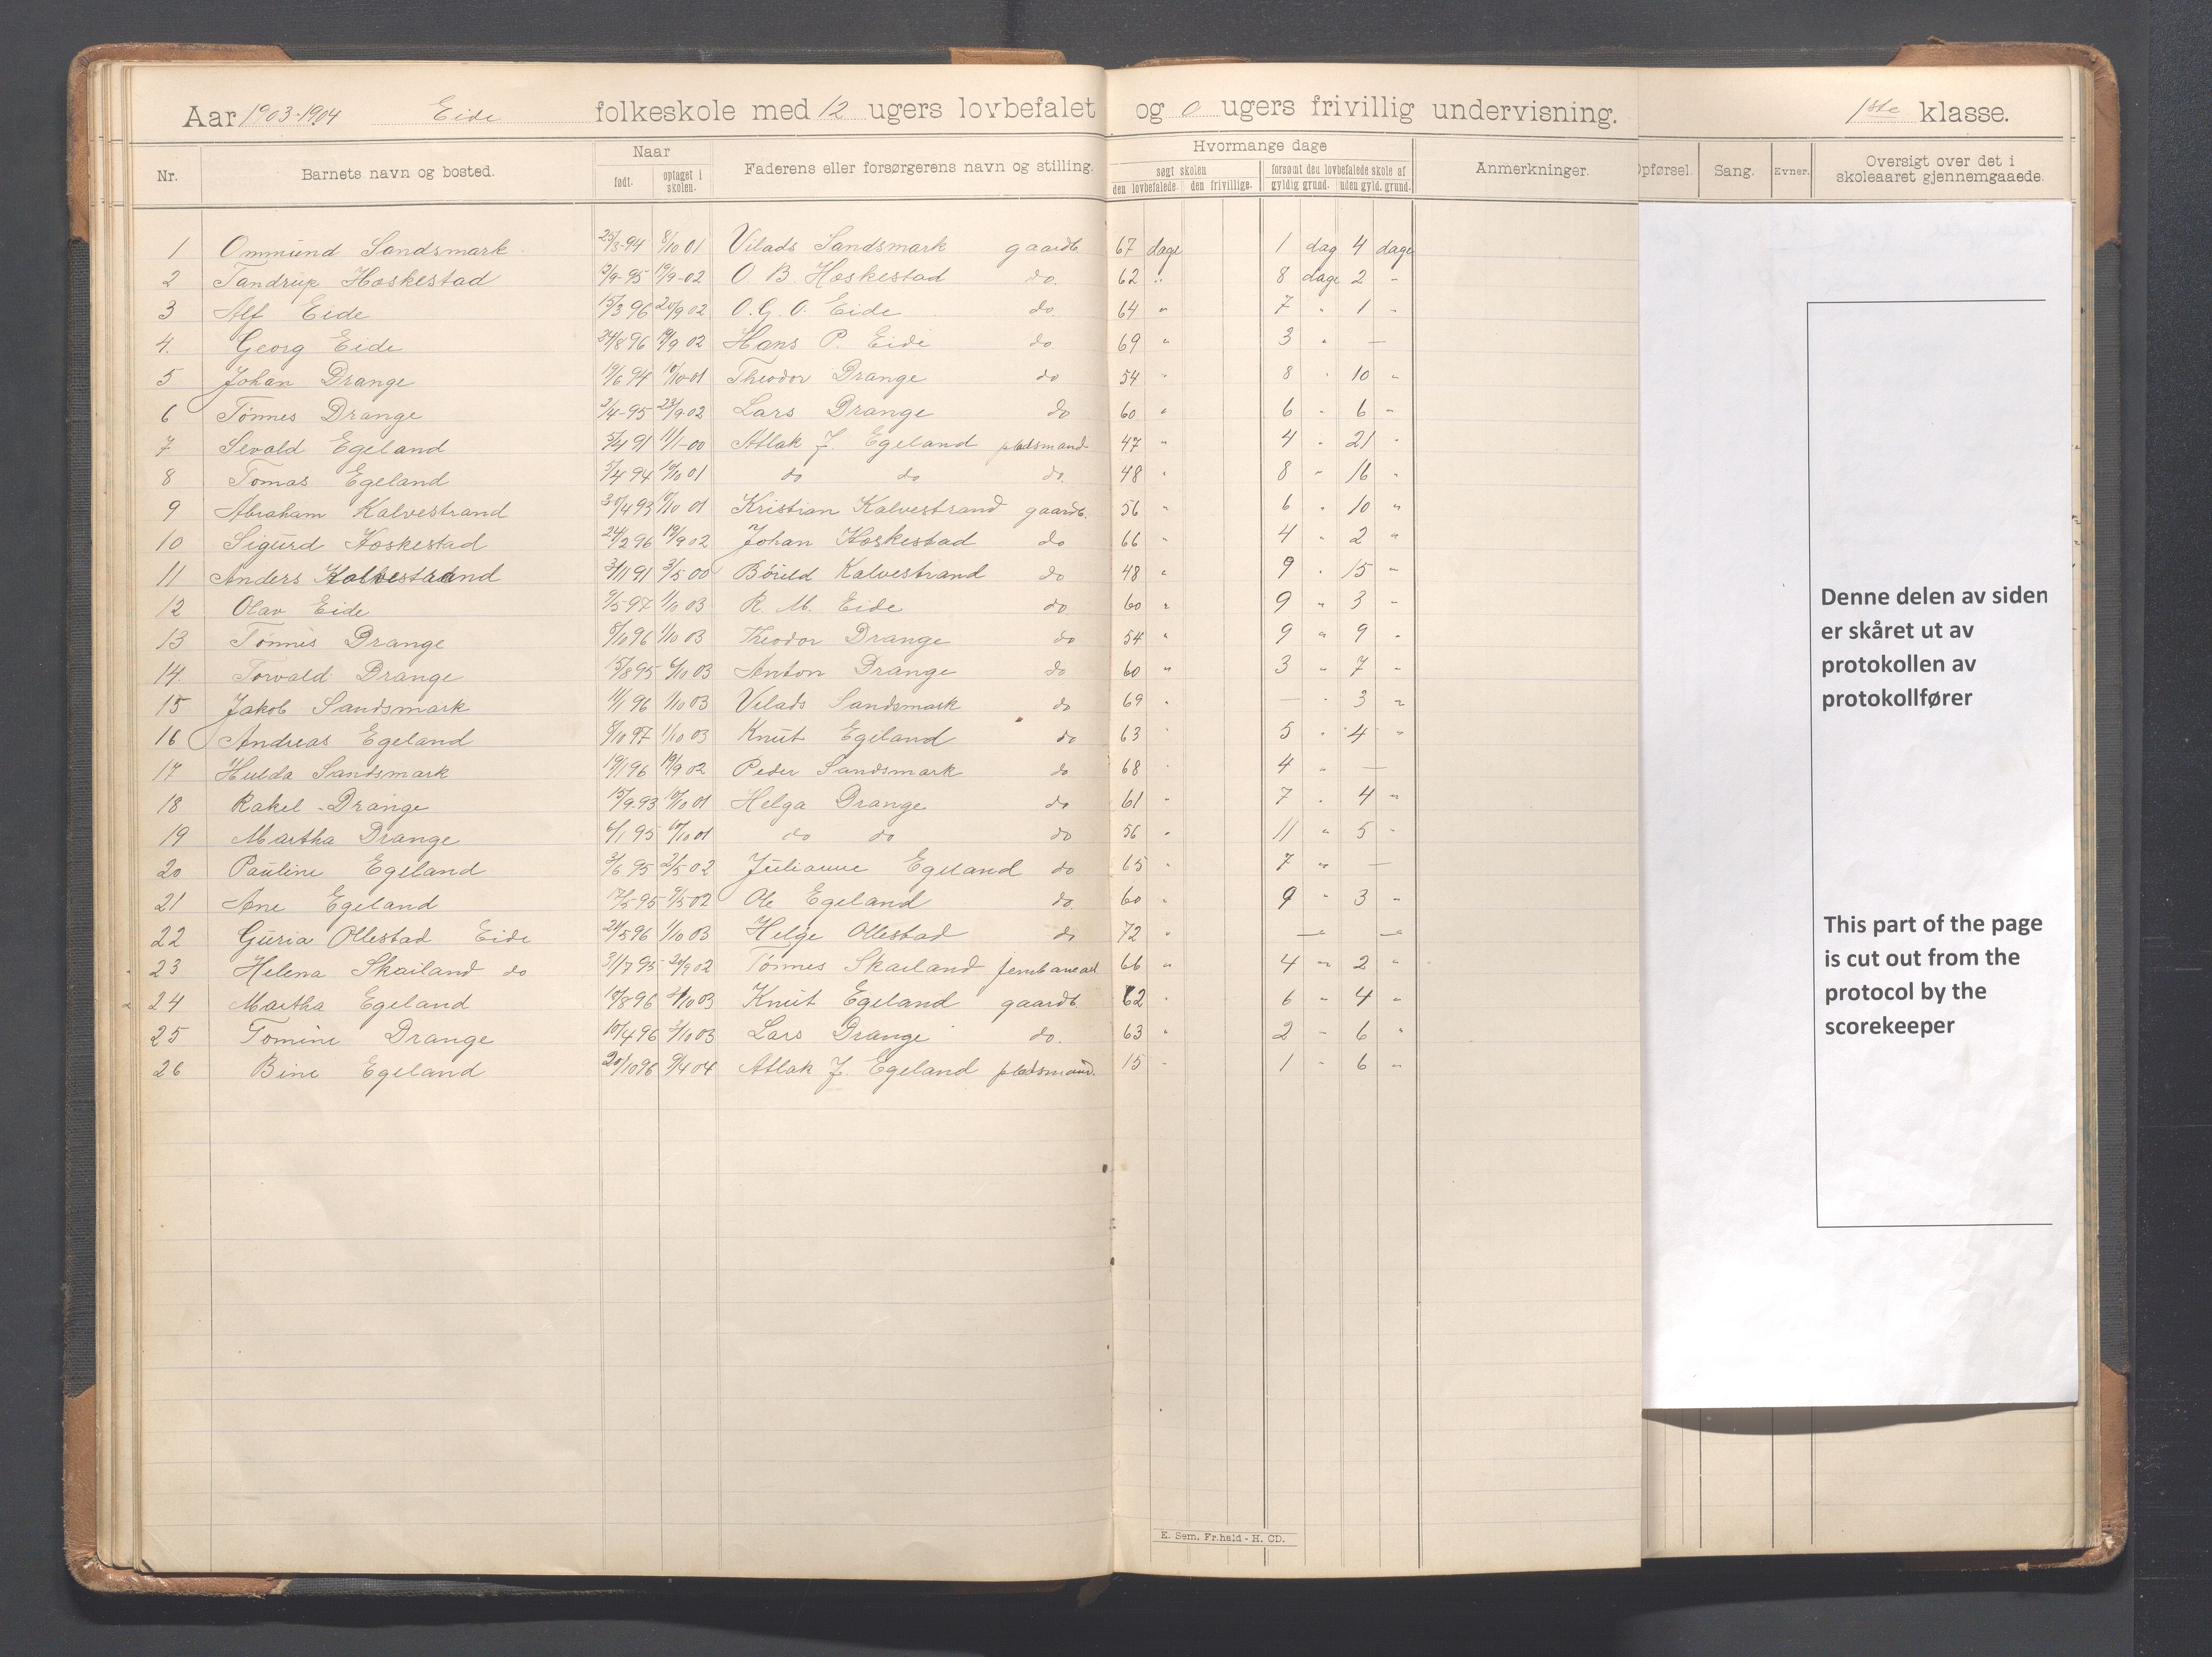 Aar 1903-1904 Eide folkeskole med 12 ugers lovbefalet og 0 ugers frivillig undervisning. 1ste klasse.
Nr. Barnets navn og bosted. Naar født. optaget i skolen. Faderens eller forsørgerens navn og stilling. Hvormange dage søgt skolen den lovbefalede. den frivillige. forsømt den lovbefalede skole af gyldig grund. uden gyld. grund. Anmerkninger. Opførsel. Sang. Evner. Oversigt over det i skoleaaret gjennemgaaede.
1 Ommund Sandsmark 25/3-94 8/10 01 Vilads Sandsmark gaardb. 67 dage 1 dag 4 dage
2 Tandrup Hoskestad /9-95 19/9-02 O. B. Hoskestad do. 62 " 8 dage 2 "
3 Alf Eide 15/3 96 20/9 02 O. G. O. Eide do. 64 " 7 " 1 "
4. Georg Eide 24/8 96 19/9 02 Hans P. Eide do 69 " 3 " —
5 Johan Drange 19/6 94 10/10-01 Theodor Drange do 54 " 8 " 10 "
6 Tønnes Drange 2/4-95 23/9 02 Lars Drange do 60 " 6 " 6 "
7 Sevald Egeland 5/4 91 11/1-00 Atlak J. Egeland pladsmand 47 " 4 " 21 "
8 Tomas Egeland 5/4 94 10/10 01 do do do. 48 " 8 " 16 "
9 Abraham Kalvestrand 30/4 93 /10 01 Kristian Kalvestrand gaardb. 56 " 6 " 10 "
10 Sigurd Hoskestad 24/2 96 19/9 02 Johan Hoskestad do 66 " 4 " 2 "
11 Anders Kalvestrand 3/11 91 3/5 00 Børild Kalvestrand do 48 " 9 " 15 "
12 Olav Eide 9/5-97 1/10 03 R. M. Eide do 60 " 9 " 3 "
13 Tønnes Drange 8/10 96 1/10 03 Theodor Drange do 54 " 9 " 9 "
14. Torvald Drange 15/8 95 6/10 03 Anton Drange do 60 " 3 " 7 "
15 Jakob Sandsmark 11/1 96 1/10 03 Vilads Sandsmark do 69 " — " 3 "
16 Andreas Egeland 8/10 97 1/10 03 Knut Egeland do 63 " 5 " 4 "
17 Hulda Sandsmark 19/1 96 19/9 02 Peder Sandsmark do 68 " 4 " —
18 Rakel Drange 15/9-93 10/10 01 Helga Drange do 61 " 7 " 4 "
19 Martha Drange 6/1 95 10/10 01 do do do 56 " 11 " 5 "
20 Pauline Egeland 3/6 95 2/5 02 Julianne Egeland do 65 " 7 " —
21 Ane Egeland 17/5-95 /5 02 Ole Egeland do. 60 " 9 " 3 "
22 Guria Ollestad Eide 21/5 96 1/10 03 Helge Ollestad do 72 " — —
23 Helena Skailand do 31/7 95 20/9 02 Tønnes Skailand 66 " 4 " 2 "
24 Martha Egeland 18/8 96 /10 03 Knut Egeland gaardb. 62 " 6 " 4 "
25 Tomine Drange 10/4 96 2/10 03 Lars Drange do. 63 " 2 " 6 "
26 Bine Egeland 20/10 96 9/4 04 Atlak J. Egeland pladsmand. 15 " 1 " 6 "
Denne delen av siden
er skåret ut av
protokollen av
protokollfører
This part of the page
is cut out from the
protocol by the
scorekeeper
E. Sem. Fr.hald - H. CD.